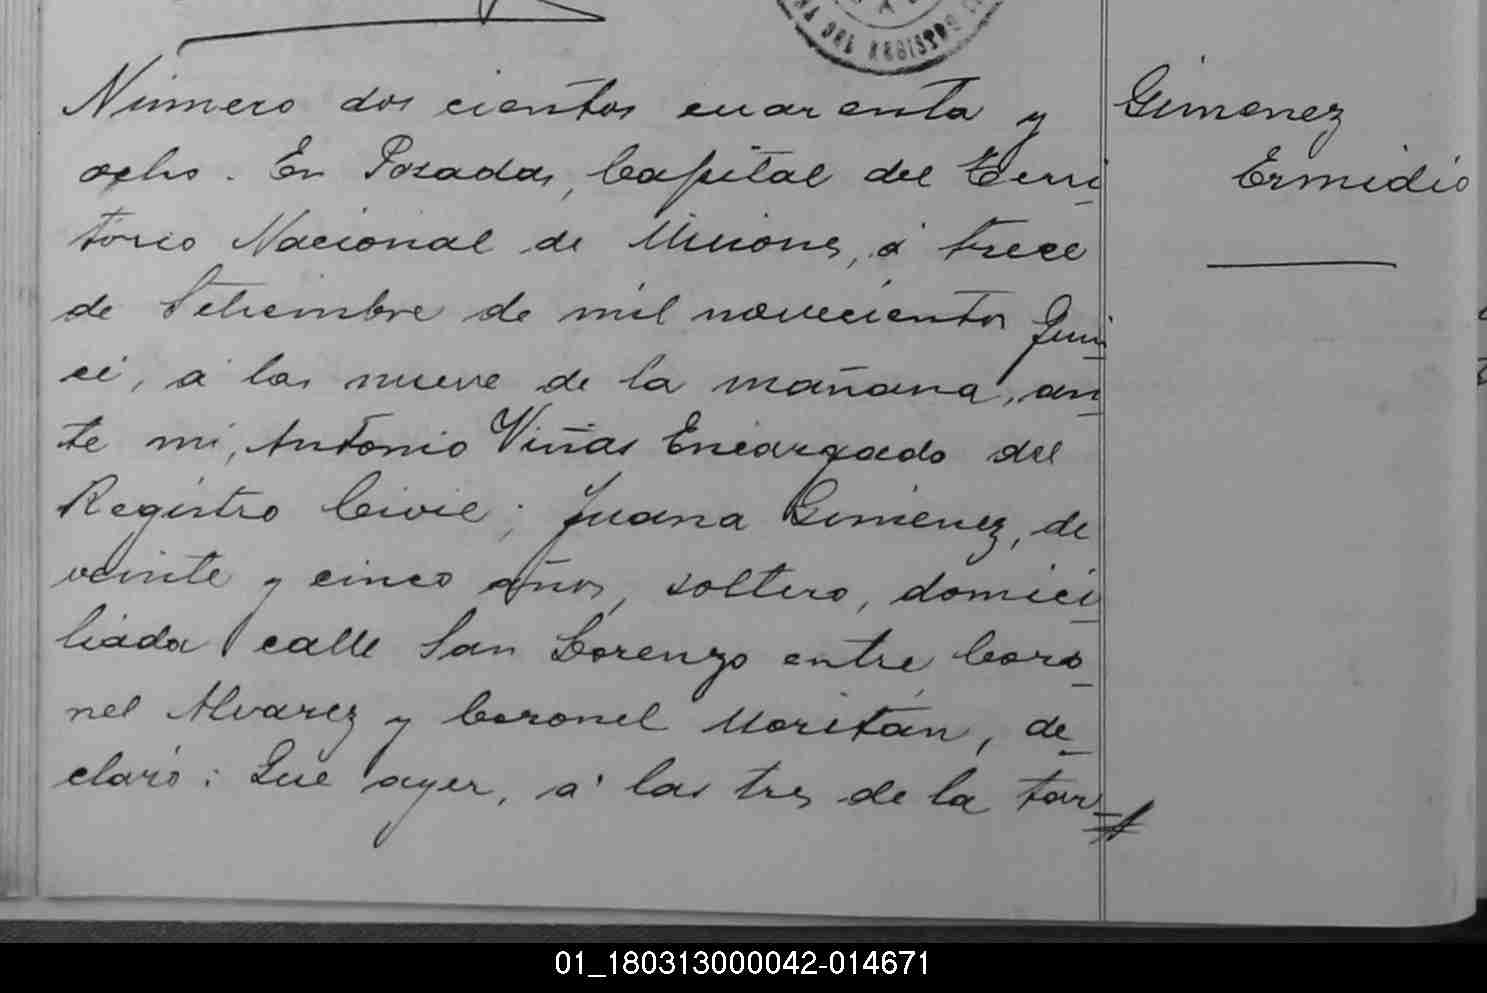 DEL REGISTRO
Número dos cientos cuarenta y
ocho. En Posadas, Capital del Terri
torio Nacional de Misiones, á trece
de Setiembre de mil novecientos quin
ce, á las nueve de la mañana, an
te mi, Antonio Viñas Encargado del
Registro Civil; Juana Gimenez, de
veinte y cinco años, soltero, domici
liada calle San Lorenzo entre Coro
nel Alvarez y Coronel Moritán, de
claró: Que ayer, á las tres de la tar
Gimenez
Ermidio
01_180313000042-014671